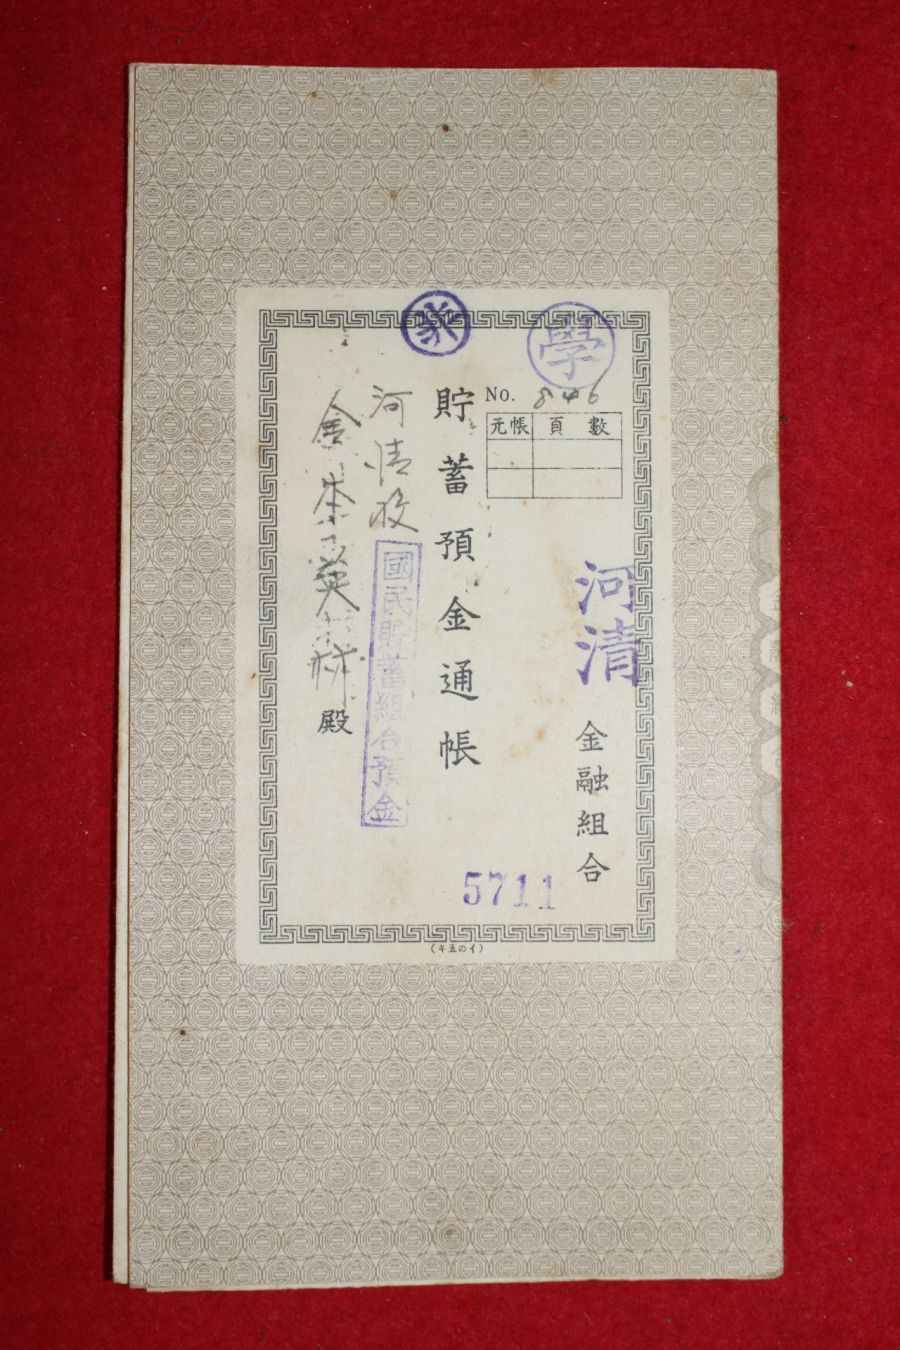 學
No. 846
元帳 頁數
河清
金融組合
貯蓄預金通帳
5711
河清校
國民貯蓄組合預金
金本英林
殿
(イの五キ)